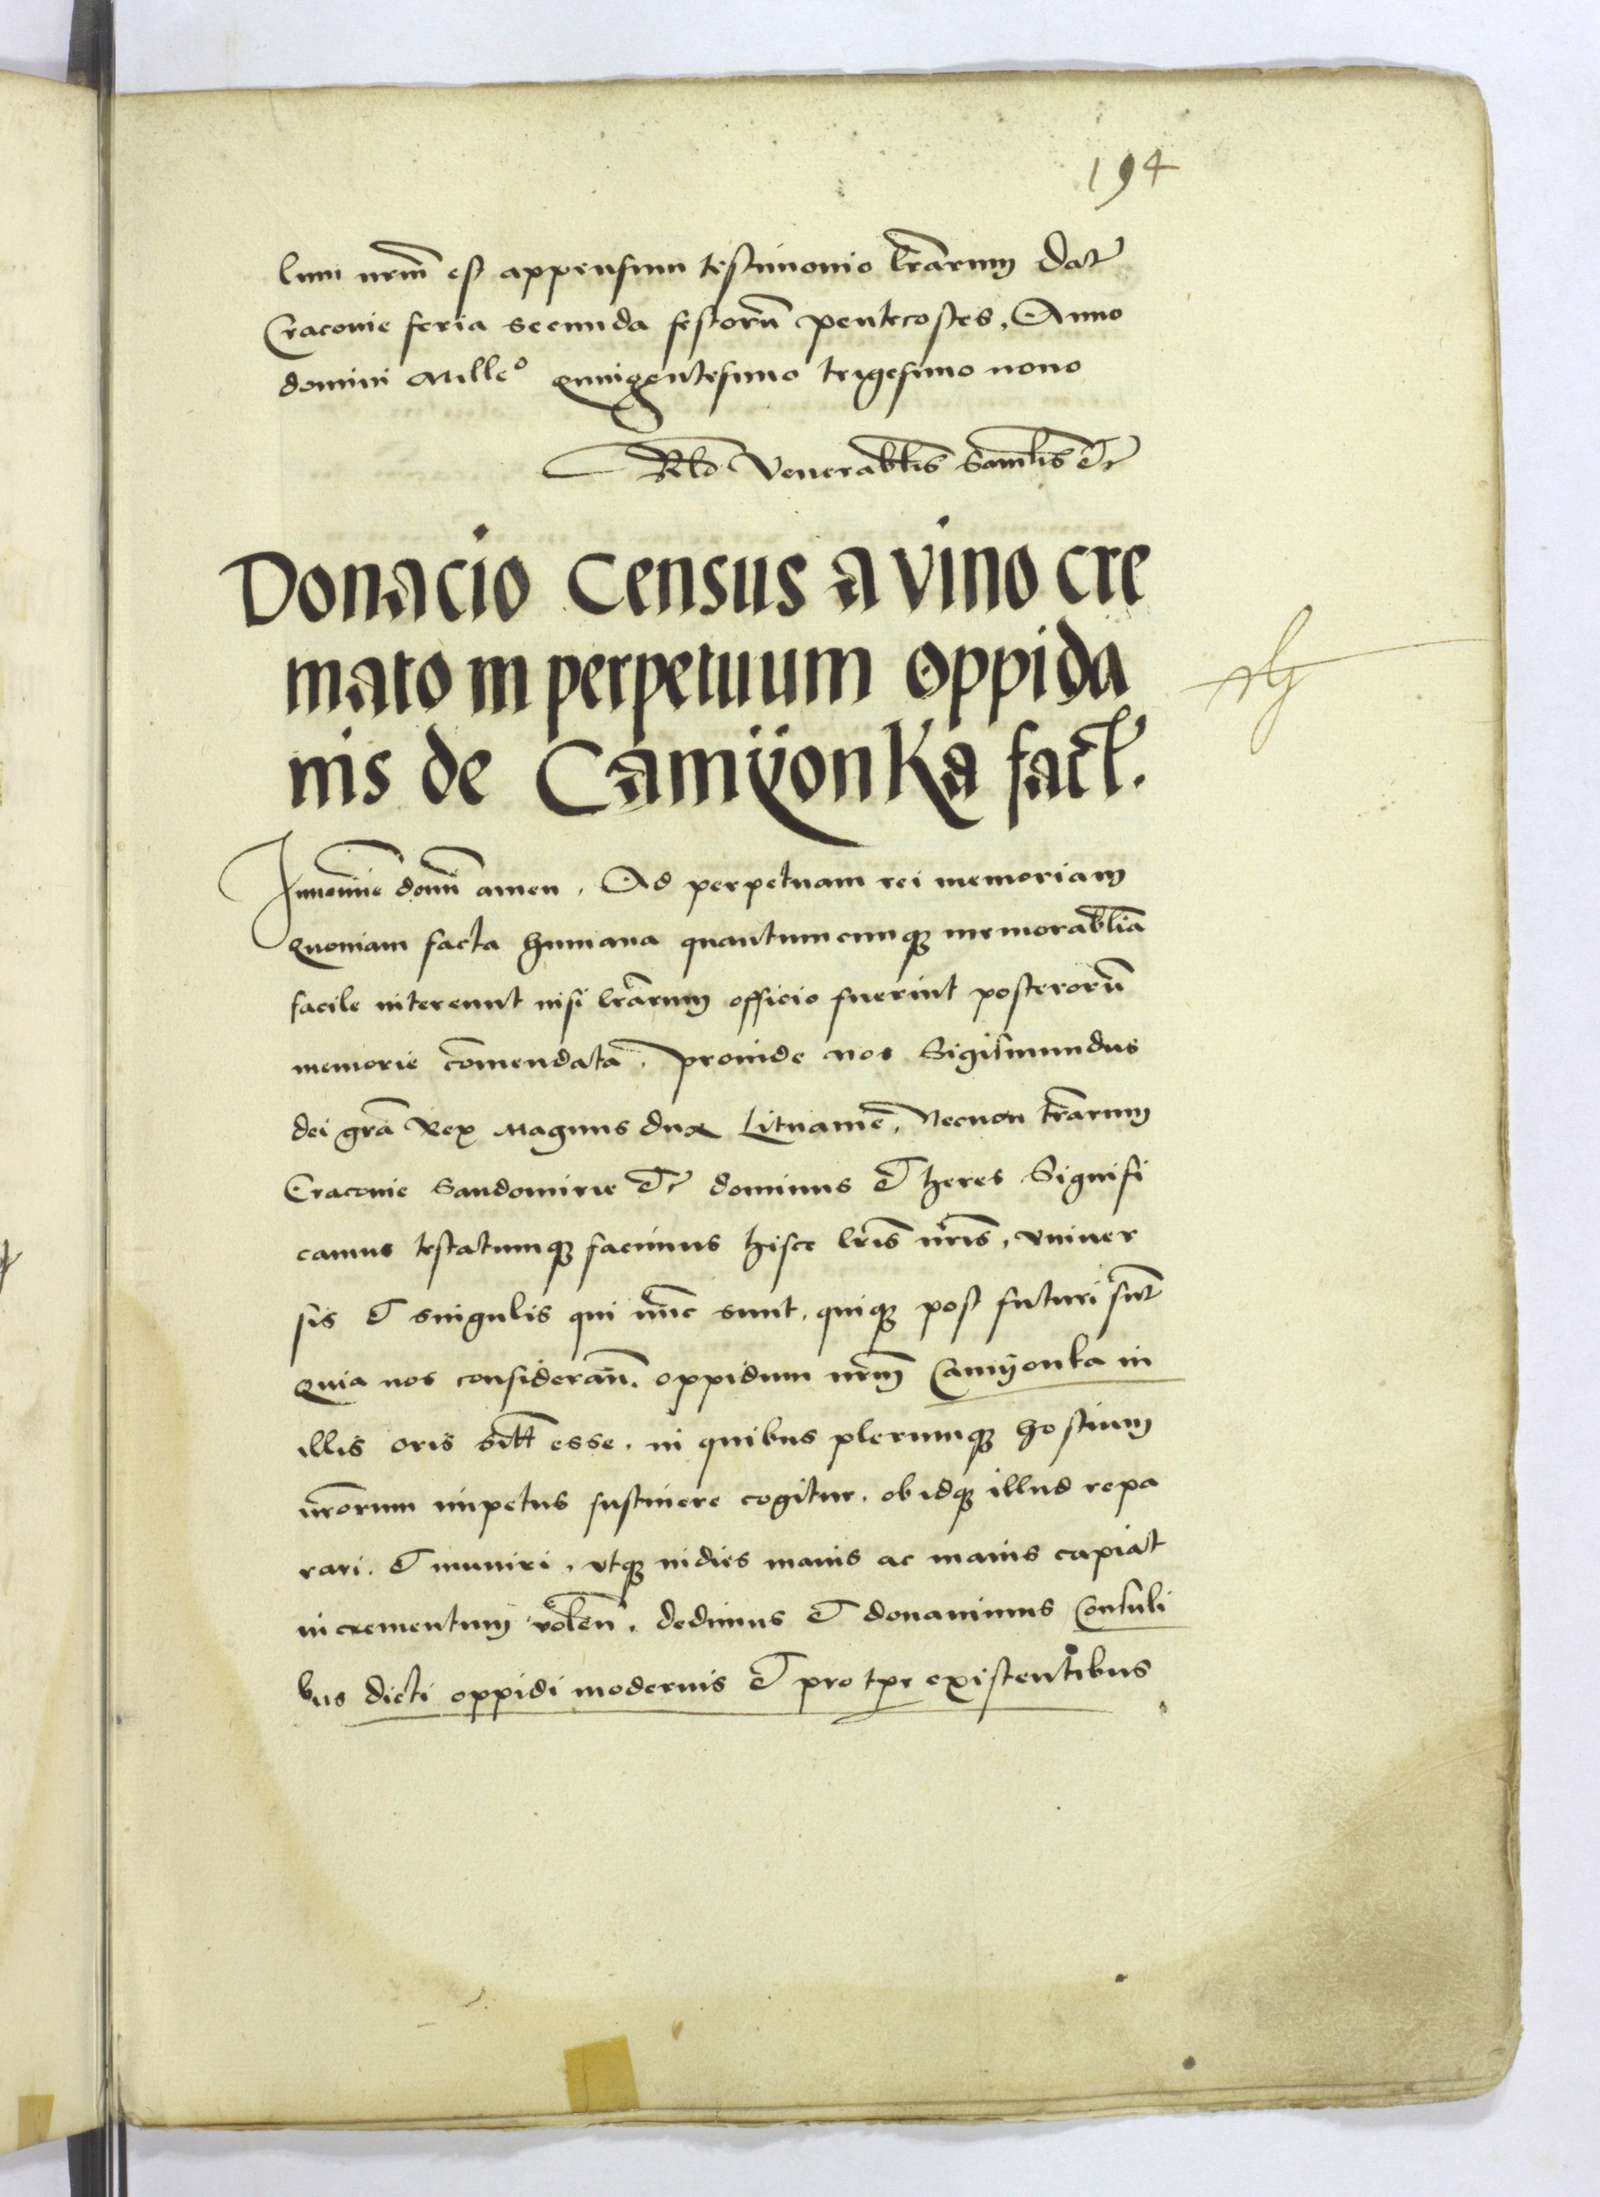 194
lum nrm̄ est appensum testimonio lrārum Dat̄
Cracovie feria secunda festorū pentecostes, Anno
domini Mille° quingentesimo trigesimo nono
Rlō Venerabl̄is Saml̄is et̄
Donacio Census a vino cre
mato in perpetuum oppida
nis de Camÿonka fact̄.
Innomīne domī amen. Ad perpetuam rei memoriam
Quoniam facta humana quantumcunqꝫ memorabl̄ia
facile intereunt nisi lrārum officio fuerint posterorū
memorie com̄endata. Proinde nos Sigismundus
dei grā Rex Magnus dux Lituaniē. Necnon trārum
Cracovie Sandomirie et̄ dominus et heres Signifi
camus testatumqꝫ facimus hisce lrīs nrīs, univer
sis et singulis qui nūc sunt, quiqꝫ post futuri sūt
Quia nos considerān̄. oppidum nrm̄ Camÿonka in
illis oris sitt̄ esse, in quibus plerumqꝫ hostium
nrōrum impetus sustinere cogitur, ob idqꝫ illud repa
rari et muniri, utqꝫ indies maius ac maius capiat
incrementum volen̄, dedimus et donavimus Consuli
bus dicti oppidi modernis et pro tpr̄ existentibus